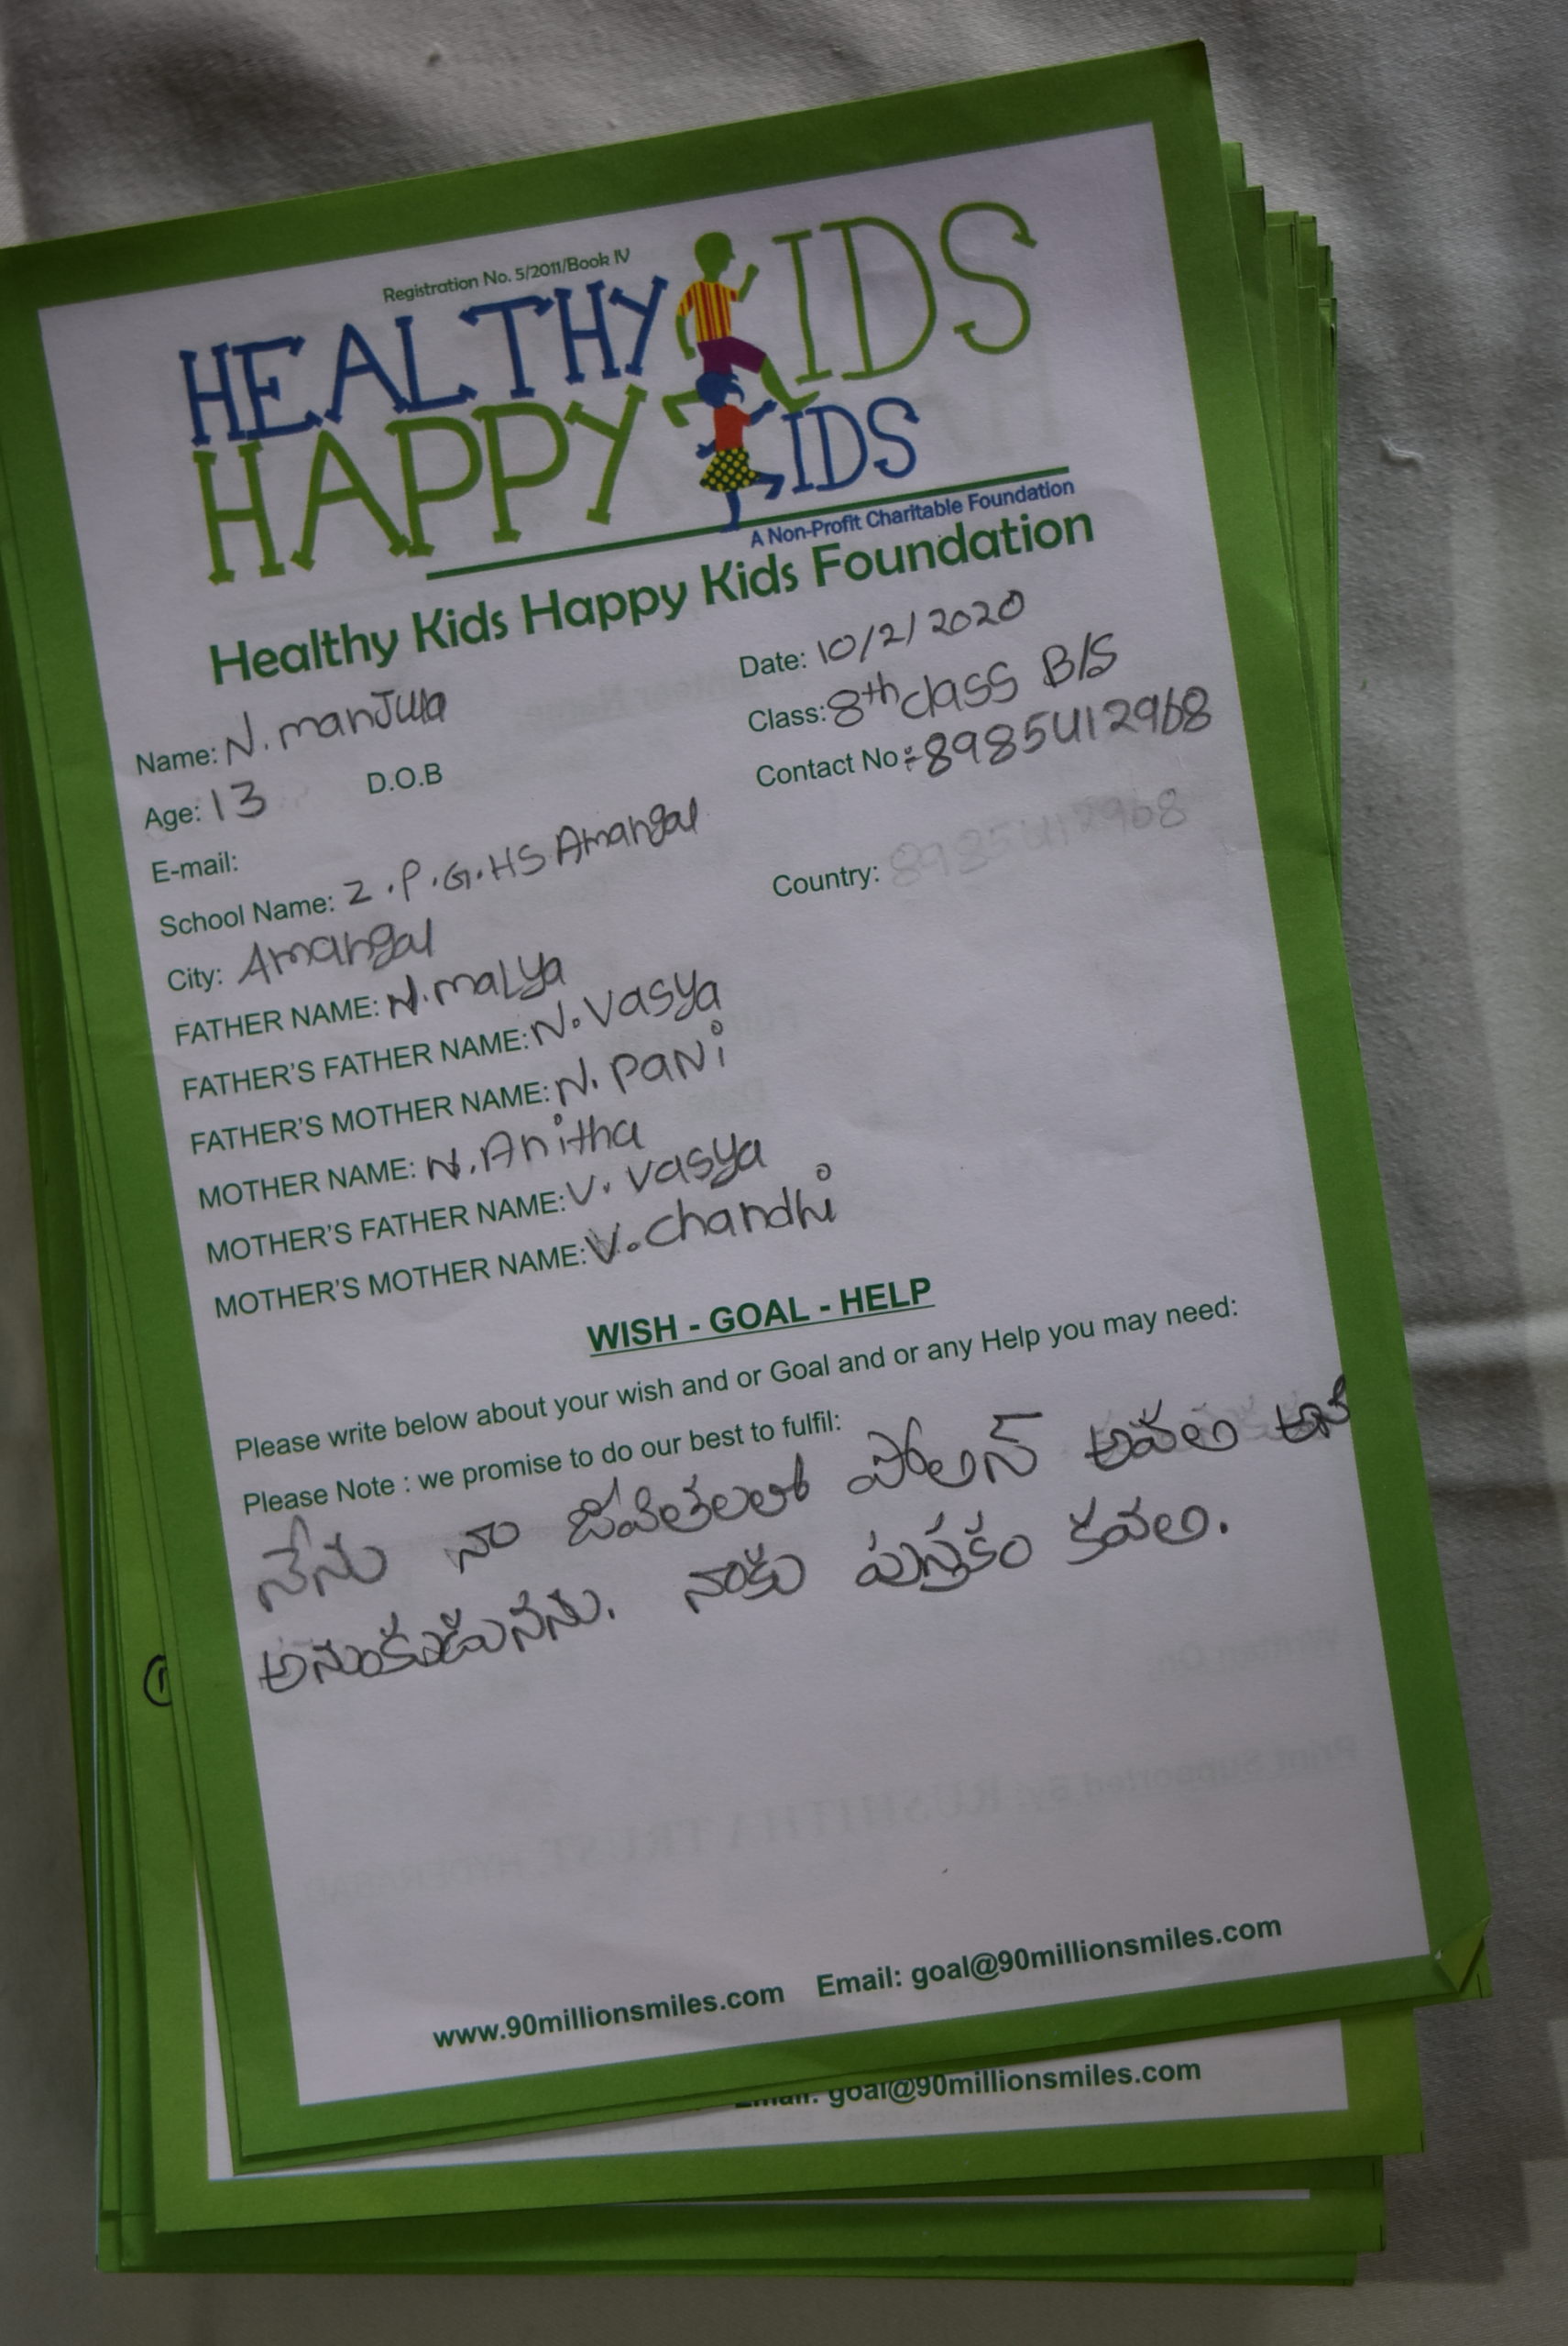 Registration No. 5/2011/Book IV
HEALTHY KIDS
HAPPY KIDS
A Non-Profit Charitable Foundation
Healthy Kids Happy Kids Foundation
Date: 10/2/2020
Name: N. manJula
Class: 8th class B/S
Age: 13 D.O.B
Contact No : 8985412968
E-mail:
School Name: Z.P.G.HS Amangal
Country: 8985412968
City: Amangal
FATHER NAME: N. malya
FATHER'S FATHER NAME: N. vasya
FATHER'S MOTHER NAME: N. PaNi
MOTHER NAME: N. Anitha
MOTHER'S FATHER NAME: V. vasya
MOTHER'S MOTHER NAME: V. chandhi
WISH - GOAL - HELP
Please write below about your wish and or Goal and or any Help you may need:
Please Note : we promise to do our best to fulfil:
నేను నా జీవితలలో పోలిస్ అవలి అని
అనుంకుడునను. నాకు పుస్తకం కవలి.
www.90millionsmiles.com Email: goal@90millionsmiles.com
Email: goal@90millionsmiles.com